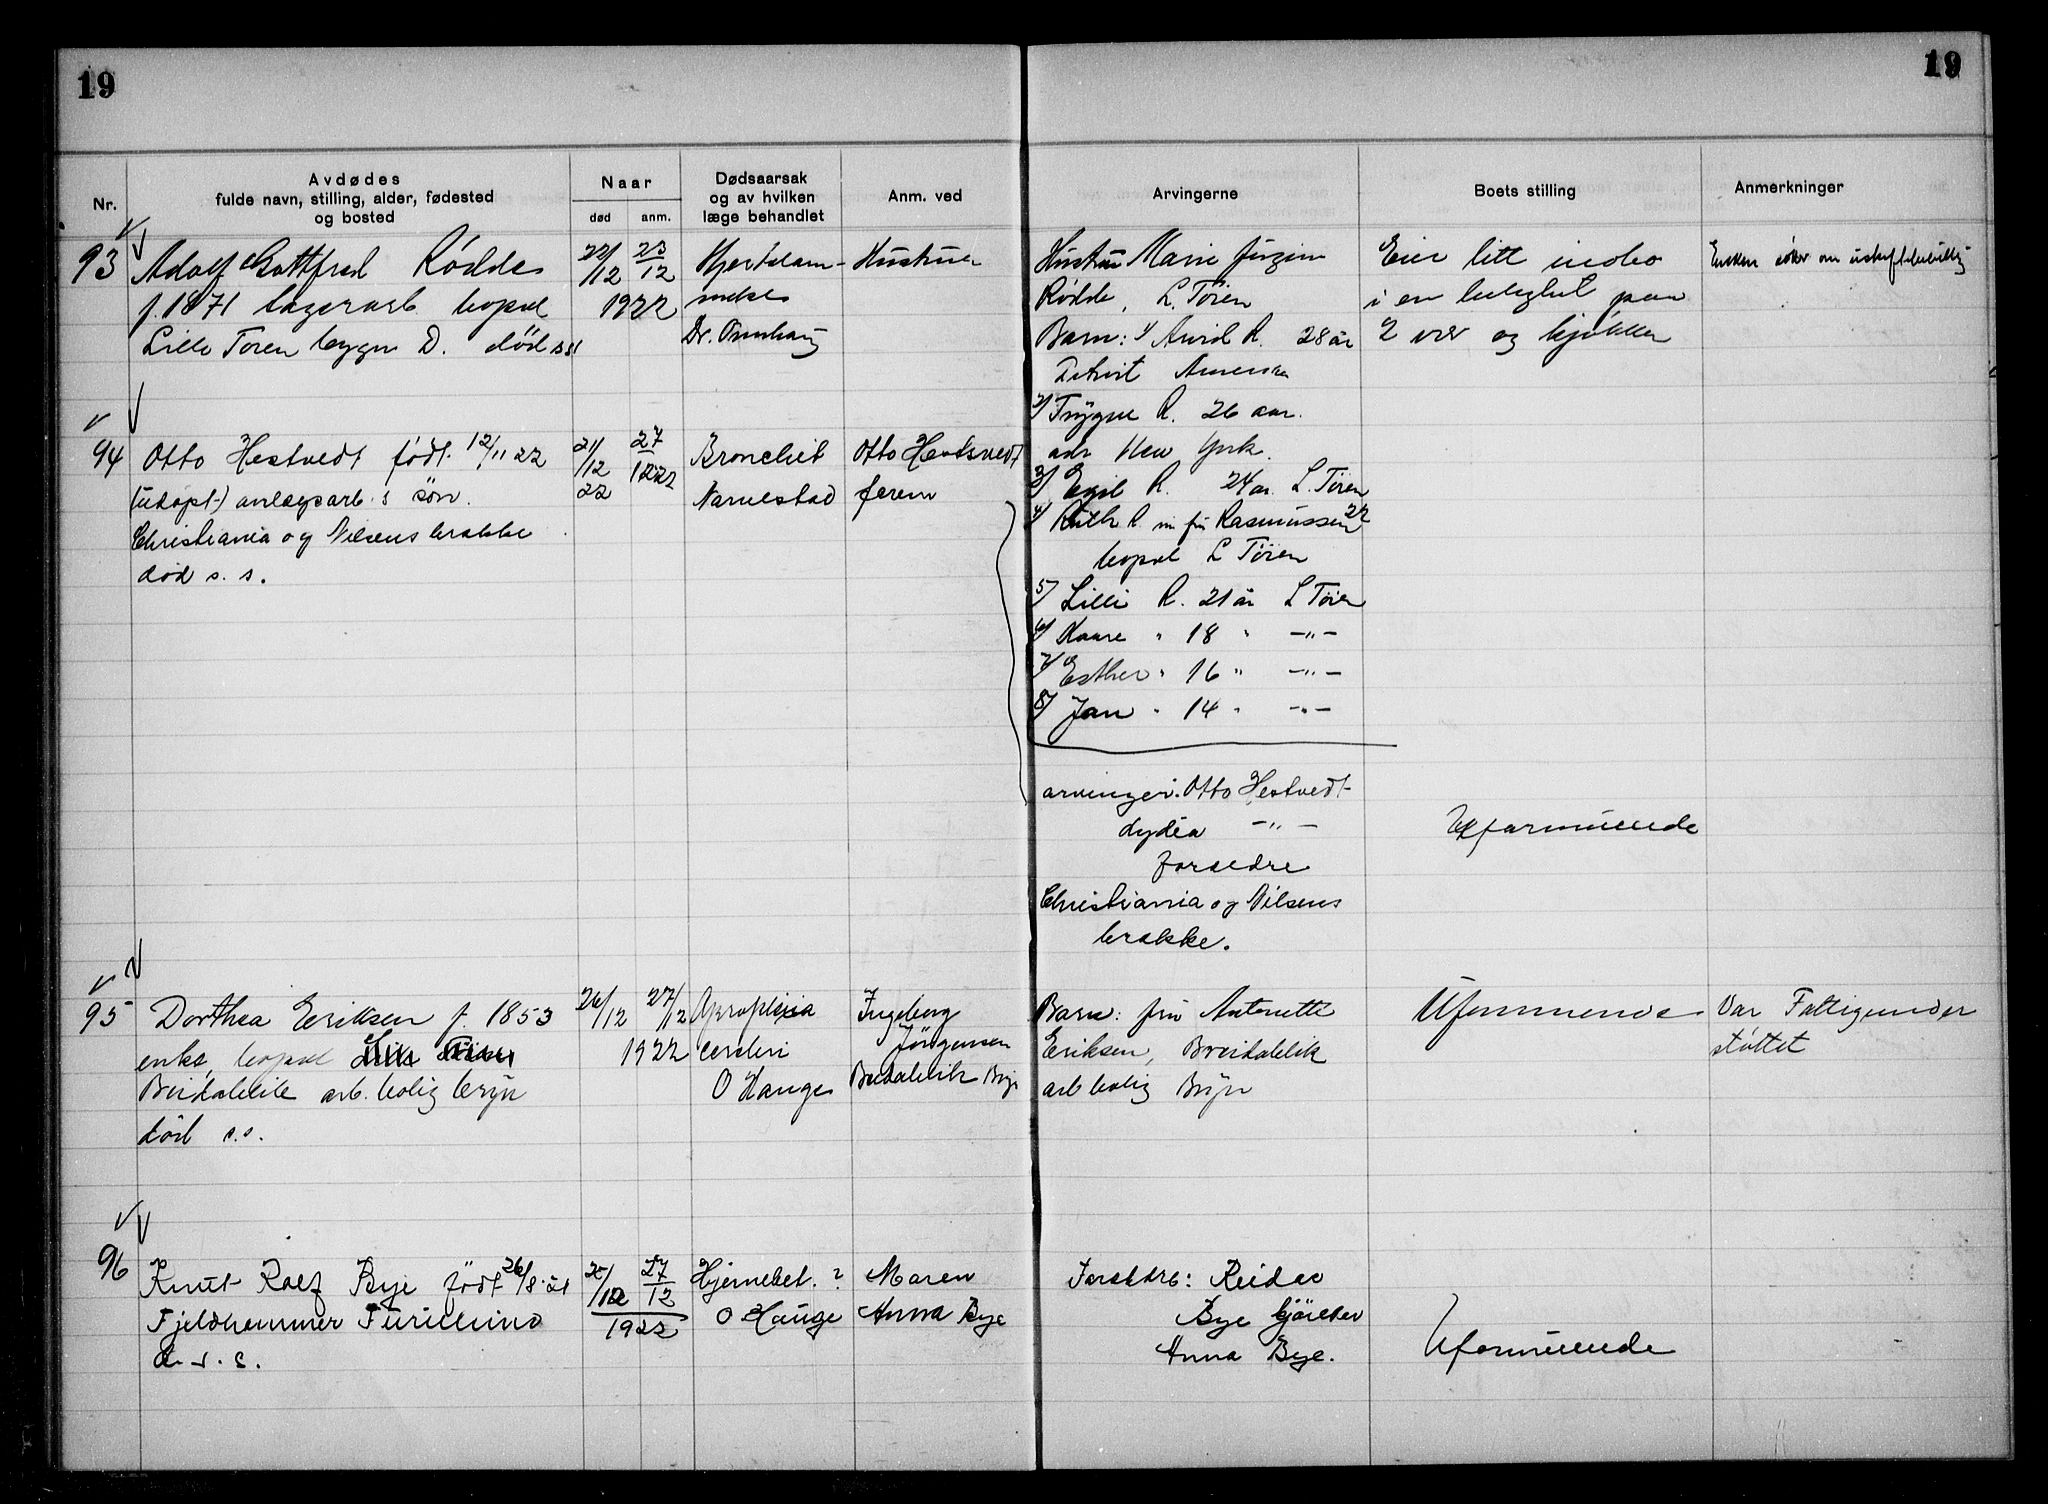 19
19
Nr.
Avdødes
fulde navn, stilling, alder, fødested
og bosted
Naar
død
anm.
Dødsaarsak
og av hvilken
læge behandlet
Anm. ved
Arvingerne
Boets stilling
Anmerkninger
93
Adolf Gottfred Rødde
f. 1871 lagerarb bopæl
Lille Tøien bygn D. død ss
22/12 23/12
1922
Hjertelam-
melse
Dr.
Hustruen
Hustru Marie
Rødde, L. Tøien
Barn: 1/ Arvid R. 28 år
Detroit Amerika
2/ Trygve R. 26 aar.
adr New York.
3/ Egil R. 24 ar. L. Tøien
4/ Ruth R. nu fru Rasmussen 22
bopæl L Tøien
5/ Lilli R. 21 år L Tøien
6/ Kaare " 18 " -"-
7/ Esther " 16 " -"-
8/ Jan " 14 " -"-
Eier litt indbo
i en leilighet paa
2 vær og kjøkken
Enken søker om uskiftebevillig
94
Otto Hestvedt født 12/11 22
(udøpt) anlægsarb. s søn.
Christiania og Nilsens brakke
død s. s.
21/12 22
27/12 22
Bronchit
Narvestad
Otto Hestvedt
faren
arvinger. Otto Hestvedt
Lydia -"-
foraldre
Christiania og Nilsens
brakke.
Uformuende
95
Dorthea Eriksen f. 1853
enke, bopæl
Breidablik arb. bolig Bryn
død s.s.
26/12 27/12
1922
Apoplexia
cerebri
O Hauge
Ingeborg
Jörgensen
Breidablik Bryn
Barn: fru Antonette
Eriksen, Breidablik
arb bolig Bryn
Uformuende
Var Fattigunder
støttet
96
Knut Rolf Bye født 26/8 21
Fjeldhammer Furulund
d. s. s.
25/12 27/12
1922
Hjernebet. ?
O Hauge
Maren
Anna Bye
Foraldre: Reidar
Bye
Anna Bye.
Uformuende